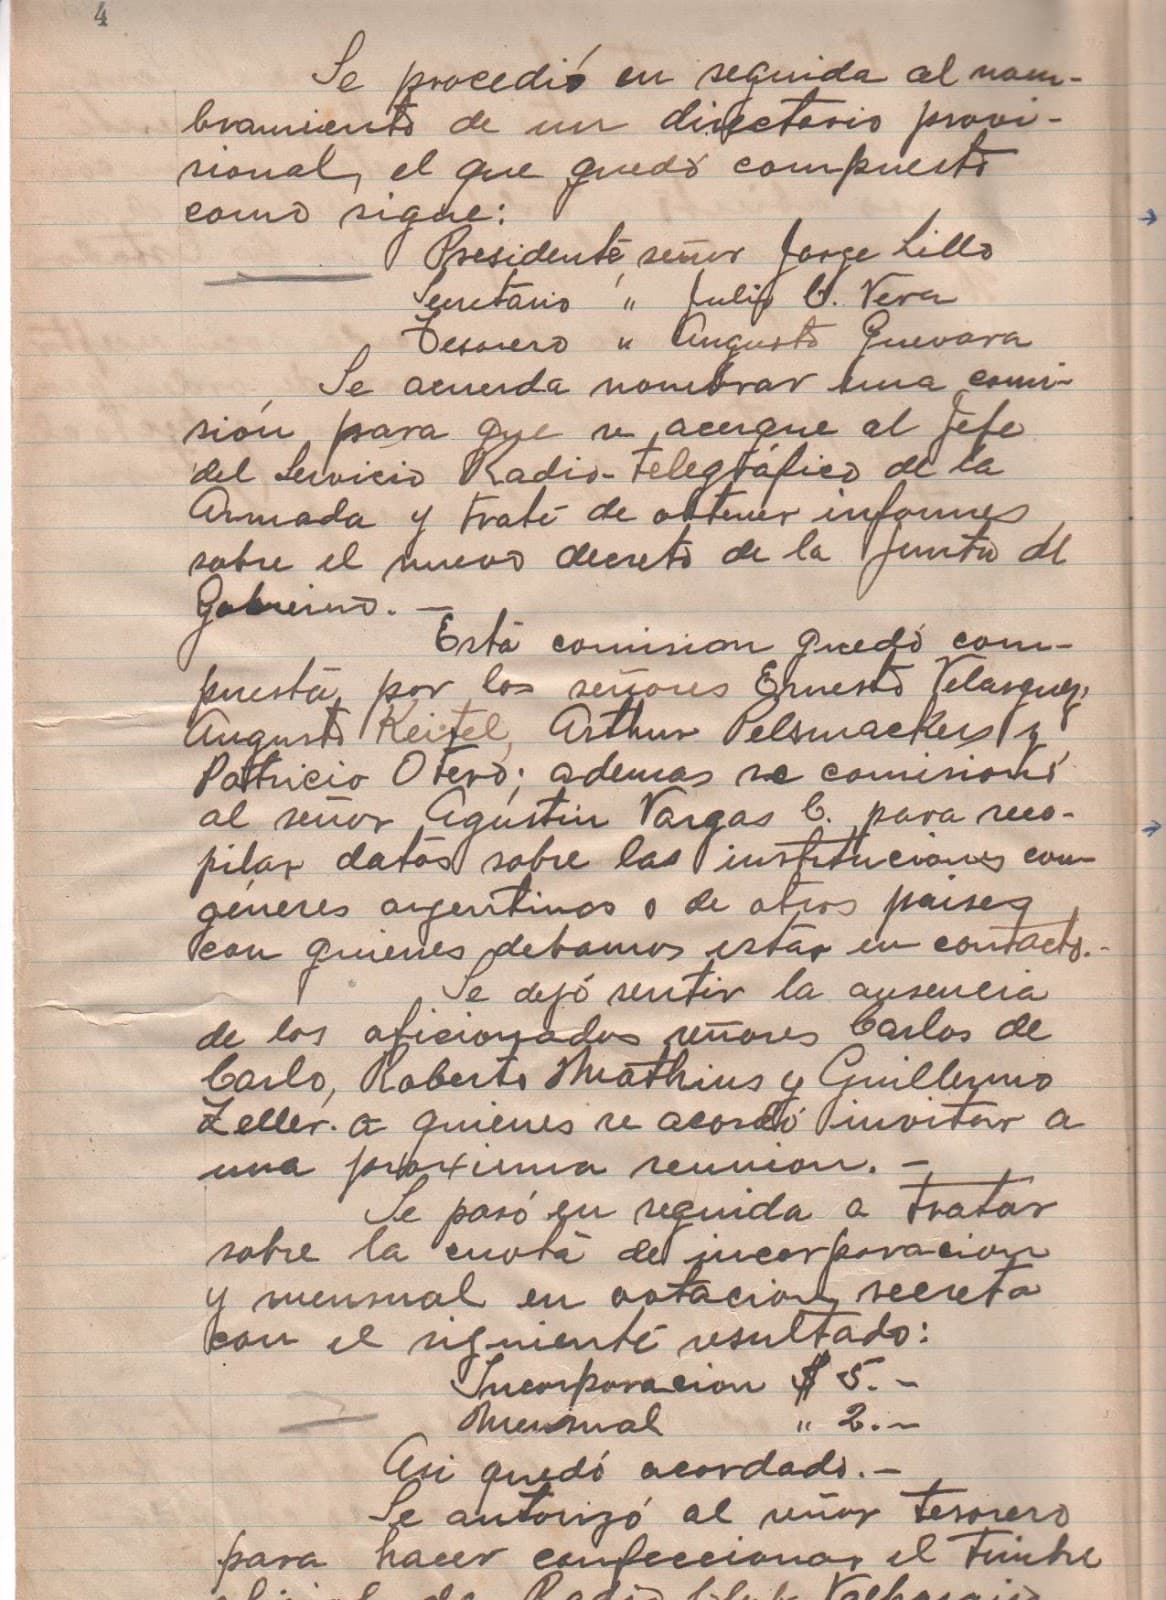 4
Se procedió en seguida al nom-
bramiento de un directorio provi-
sional, el que quedó compuesto
como sigue:
Presidente señor Jorge Lillo
Secretario " Julio C. Vera
Tesorero " Augusto Guevara
Se acuerda nombrar una comi-
sión para que se acerque al Jefe
del Servicio Radio-telegráfico de la
Armada y trate de obtener informes
sobre el nuevo decreto de la Junta de
Gobierno. —
Esta comision quedó com-
puesta por los señores Ernesto Velasquez,
Augusto Keitel, Arthur Pelsmackers y
Patricio Otero; ademas se comisionó
al señor Agustin Vargas C. para reco-
pilar datos sobre las instituciones con-
géneres argentinas o de otros paises
con quienes debamos estar en contacto.-
Se dejó sentir la ausencia
de los aficionados señores Carlos de
Carlo, Roberto Mathius y Guillermo
Zeller. a quienes se acordó invitar a
una proxima reunion. —
Se pasó en seguida a tratar
sobre la cuota de incorporacion
y mensual en votacion secreta
con el siguiente resultado:
Incorporacion $ 5. —
Mensual " 2. —
Asi quedó acordado. —
Se autorizó al señor tesorero
para hacer confeccionar el timbre
oficial de Radio Club Valparaiso